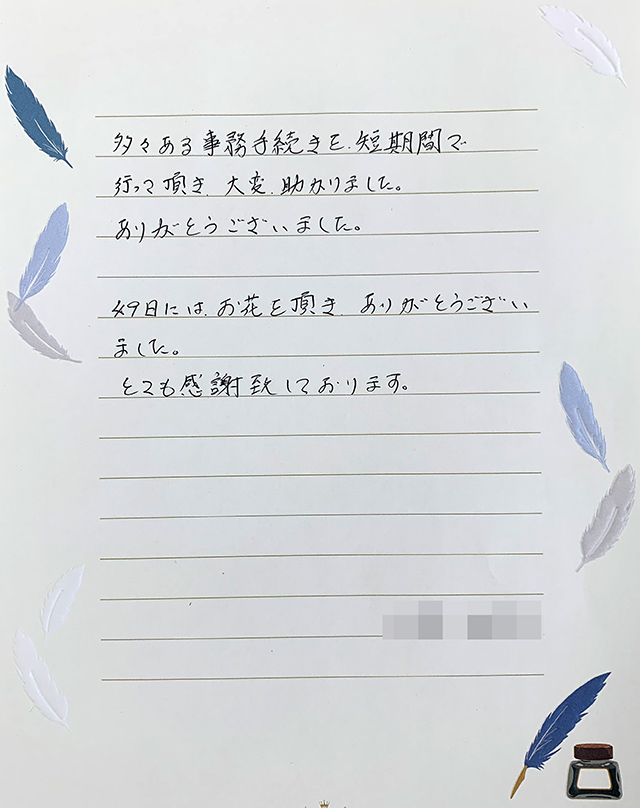 多々ある事務手続きを、短期間で
行って頂き、大変、助かりました。
ありがとうございました。
49日には、お花を頂き、ありがとうござい
ました。
とても感謝致しております。